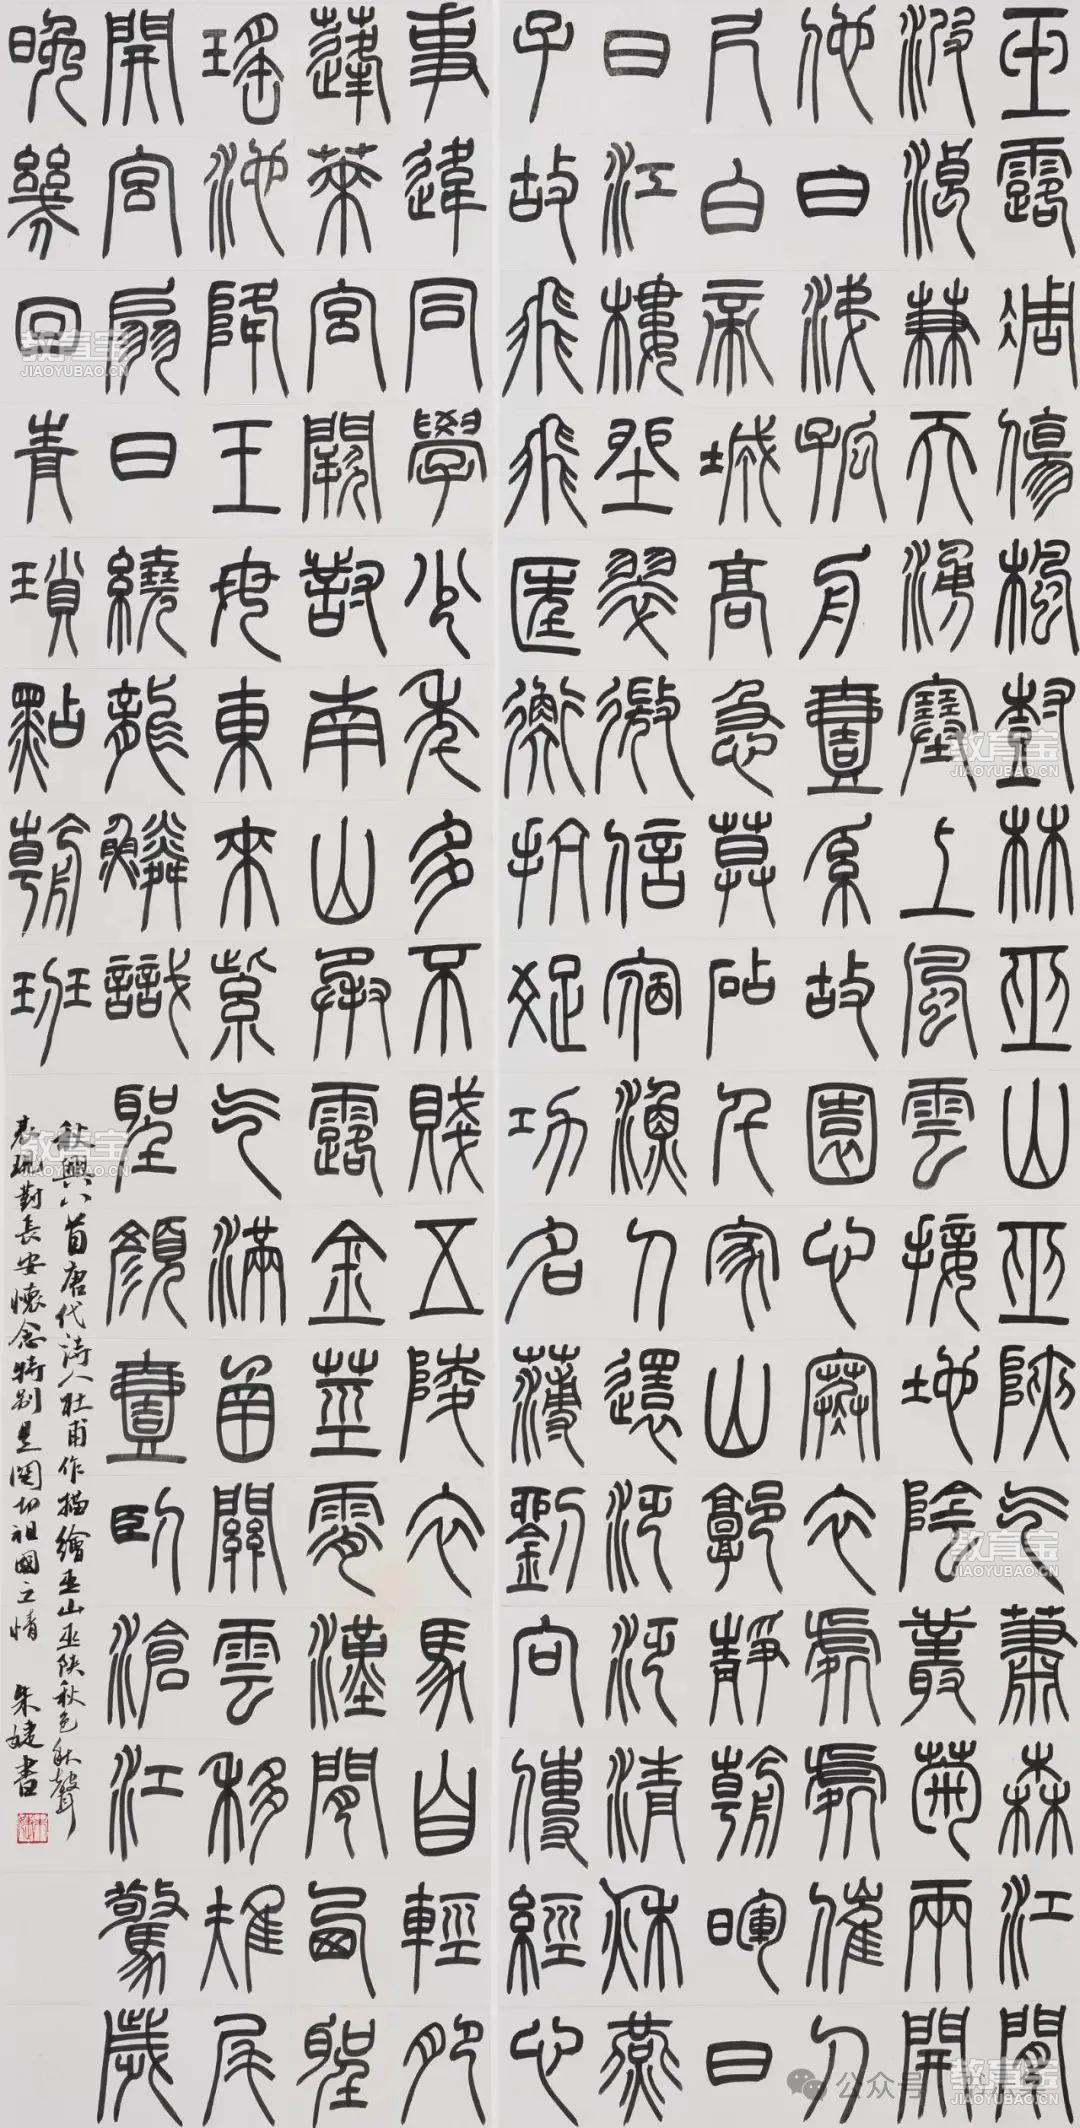 玉露凋傷楓樹林巫山巫峽气蕭森江間
波浪兼天湧塞上風雲接地陰叢菊兩開
他日淚孤舟壹系故園心寒衣處處催刀
尺白帝城高急暮砧千家山郭靜朝暉日
日江樓坐翠微信宿漁人還泛泛清秋燕
子故飛飛匡衡抗疏功名薄劉向傳經心
事違同學少年多不賤五陵衣馬自輕肥
蓬萊宮闕對南山承露金莖霄漢間西望
瑤池降王母東來紫气滿函關雲移雉尾
開宮扇日繞龍鱗識聖顏壹臥滄江驚歲
晚幾回青瑣點朝班
秋興八首唐代詩人杜甫作描繪巫山巫陝秋色秋聲
表現對長安懷念特別是關切祖國之情 朱婕書
教育宝
JIAOYUBAO.CN
教育宝
JIAOYUBAO.CN
教育宝
JIAOYUBAO.CN
教育宝
JIAOYUBAO.CN
教育宝
JIAOYUBAO.CN
公众号